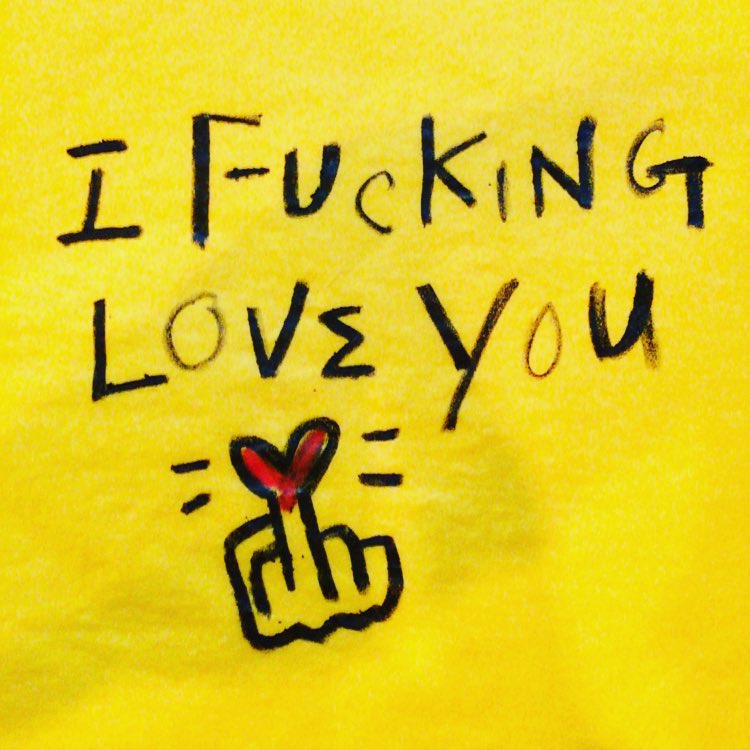 I FUCKING
LOVE YOU